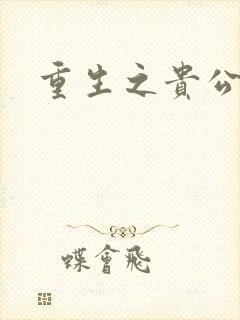 重生之貴公
蝶會飛